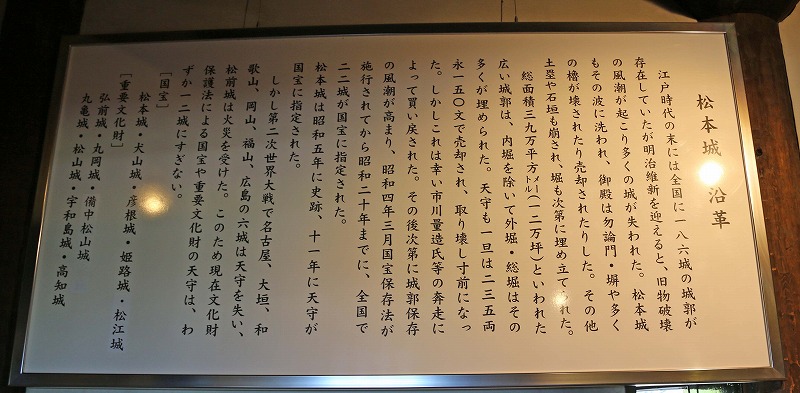 松本城 沿革
江戸時代の末には全国に一八六城の城郭が
存在していたが明治維新を迎えると、旧物破壊
の風潮が起こり多くの城が失われた。松本城
もその波に洗われ、御殿は勿論門・塀や多く
の櫓が壊されたり売却されたりした。その他
土塁や石垣も崩され、堀も次第に埋め立てられた。
総面積三九万平方メートル(一二万坪)といわれた
広い城郭は、内堀を除いて外堀・総堀はその
多くが埋められた。天守も一旦は二三五両
永一五〇文で売却され、取り壊し寸前になっ
た。しかしこれは幸い市川量造氏等の奔走に
よって買い戻された。その後次第に城郭保存
の風潮が高まり、昭和四年三月国宝保存法が
施行されてから昭和二十年までに、全国で
二二城が国宝に指定された。
松本城は昭和五年に史跡、十一年に天守が
国宝に指定された。
しかし第二次世界大戦で名古屋、大垣、和
歌山、岡山、福山、広島の六城は天守を失い、
松前城は火災を受けた。このため現在文化財
保護法による国宝や重要文化財の天守は、わ
ずか一二城にすぎない。
[国宝]
松本城・犬山城・彦根城・姫路城・松江城
[重要文化財]
弘前城・丸岡城・備中松山城
丸亀城・松山城・宇和島城・高知城